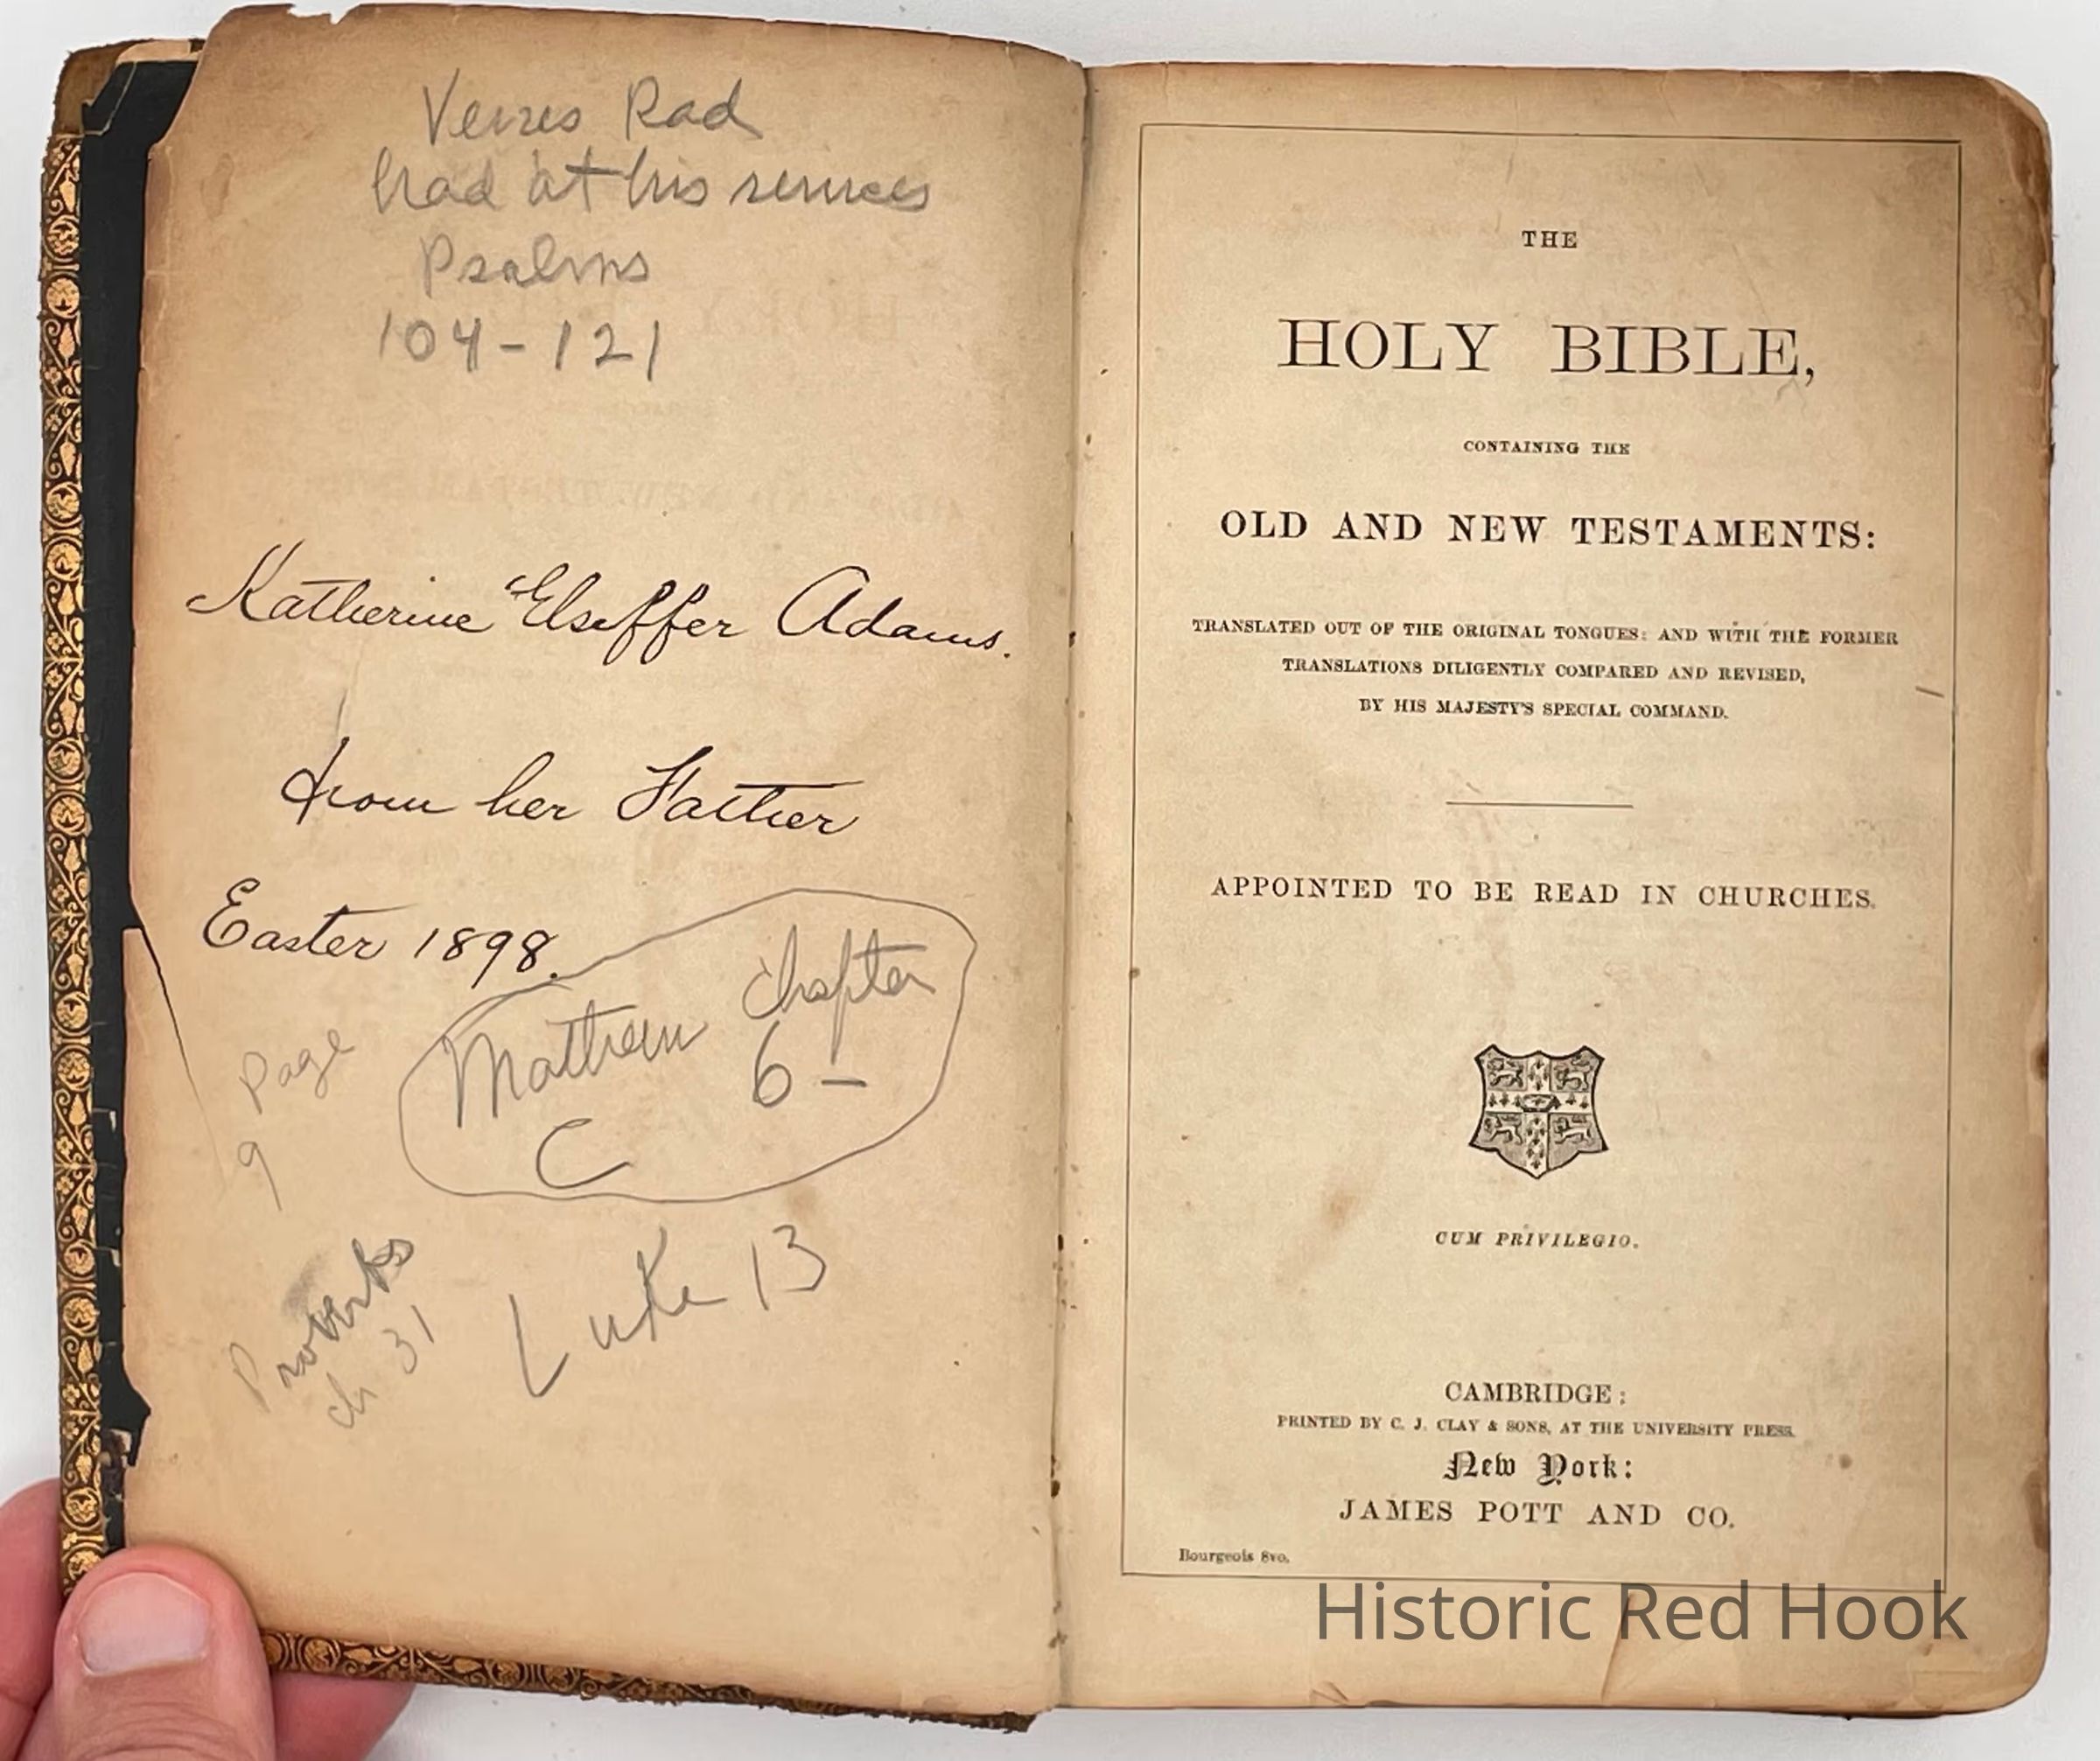 Verses Rad
had at his services
Psalms
104-121
Katherine Elseffer Adams.
from her Father
Easter 1898.
Page
9
Matthew Chapter
6-
C
Proverbs
ch 31
Luke 13
THE
HOLY BIBLE,
CONTAINING THE
OLD AND NEW TESTAMENTS:
TRANSLATED OUT OF THE ORIGINAL TONGUES: AND WITH THE FORMER
TRANSLATIONS DILIGENTLY COMPARED AND REVISED,
BY HIS MAJESTY'S SPECIAL COMMAND.
APPOINTED TO BE READ IN CHURCHES.
CUM PRIVILEGIO.
CAMBRIDGE:
PRINTED BY C. J. CLAY & SONS, AT THE UNIVERSITY PRESS.
New York:
JAMES POTT AND CO.
Bourgeois 8vo.
Historic Red Hook